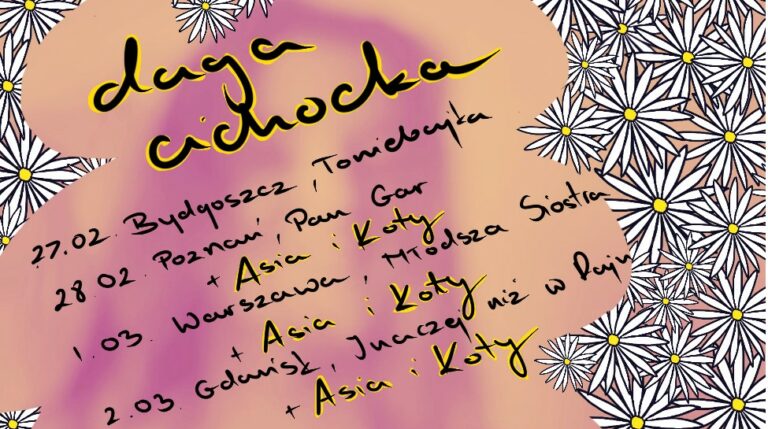 daga
cichocka
27.02. Bydgoszcz, Tomielocyka
28.02. Poznań, Pan Gar
+ Asia i Koty
1.03. Warszawa, Młodsza Siostra
+ Asia i Koty
2.03. Gdańsk, Inaczej niż w Raju
+ Asia i Koty